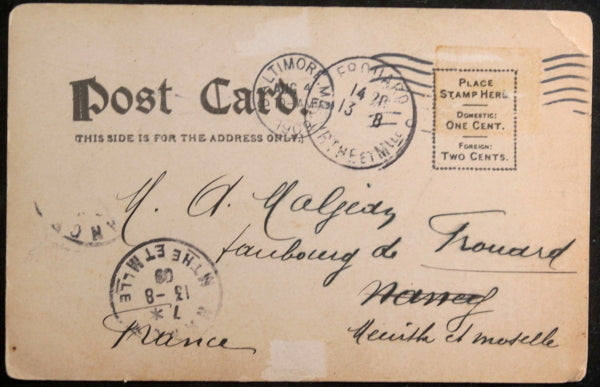 Post Card.
(THIS SIDE IS FOR THE ADDRESS ONLY.)
BALTIMORE, MD.
FROUARD
14 20
13 8
MRTHE ET MLLE
PLACE
STAMP HERE
DOMESTIC:
ONE CENT.
FOREIGN:
TWO CENTS.
M. A. Maljean
faubourg de Frouard
Nancy
Meurthe et moselle
France
NANCY
7 *
13 - 8
09
MTHE ET MLLE